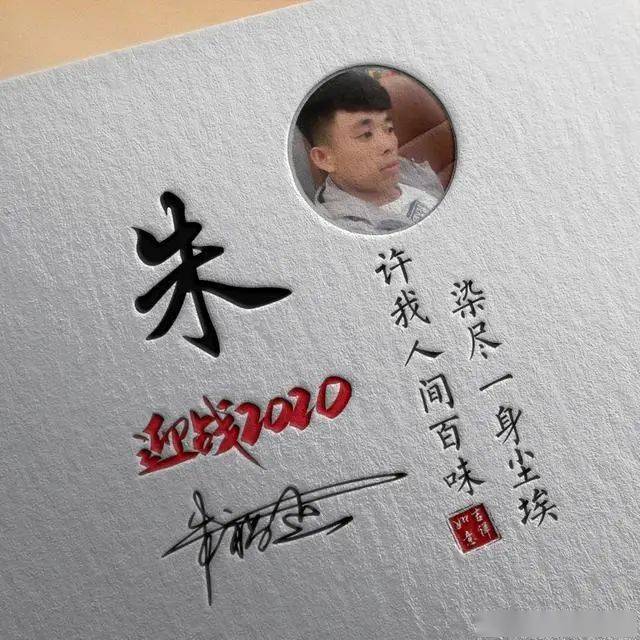 朱
迎战2020
许我人间百味
染尽一身尘埃
吉祥
如意